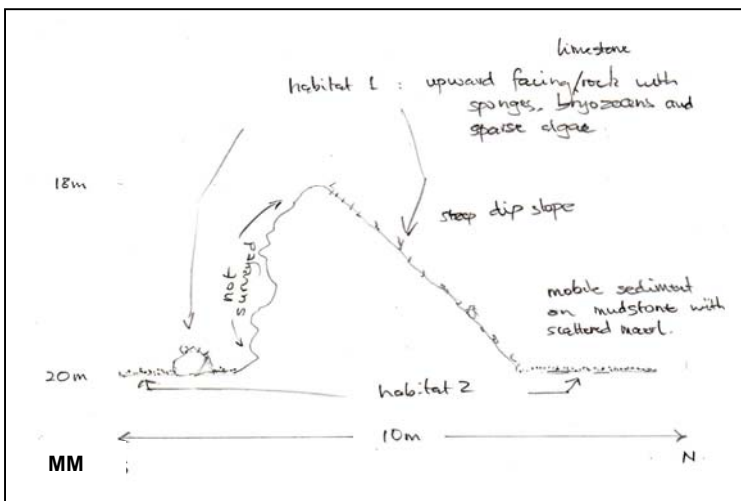 limestone
habitat 1 : upward facing/rock with
sponges, bryozoans and
sparse algae
18m
steep dip slope
not
surveyed
mobile sediment
on mudstone with
scattered maerl.
20m
habitat 2
10m
MM
S
N